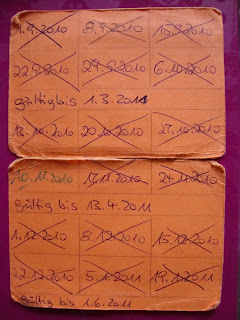 1.9.2010 8.9.2010 15.9.2010
22.9.2010 29.9.2010 6.10.2010
gültig bis 1.3.2011
13.10.2010 20.10.2010 27.10.2010
10.11.2010 17.11.2010 24.11.2010
gültig bis 13.4.2011
1.12.2010 8.12.2010 15.12.2010
22.12.2010 5.1.2011 19.1.2011
gültig bis 1.6.2011